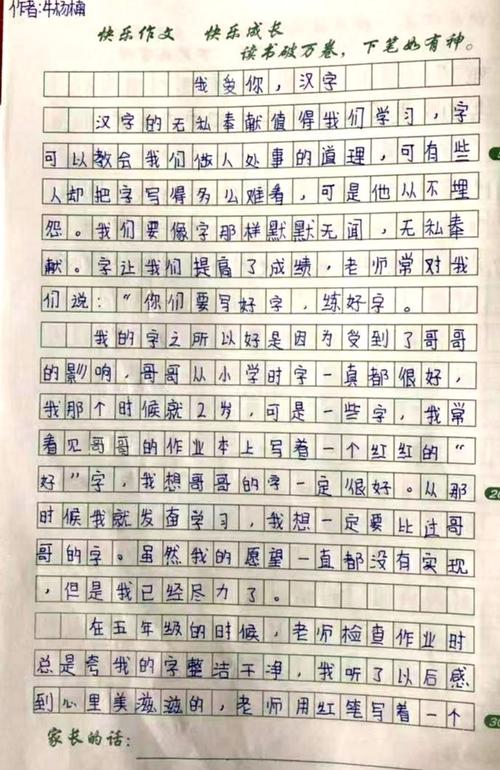 作者:牛杨楠
快乐作文 快乐成长
读书破万卷，下笔如有神。
我爱你，汉字
汉字的无私奉献值得我们学习，字
可以教会我们做人处事的道理，可有些
人却把字写得多么难看，可是他从不埋
怨。我们要像字那样默默无闻，无私奉
献。字让我们提高了成绩，老师常对我
们说："你们要写好字，练好字。
我的字之所以好是因为受到了哥哥
的影响，哥哥从小学时字一直都很好，
我那个时候就2岁，可是一些字，我常
看见哥哥的作业本上写着一个红红的"
好"字，我想哥哥的字一定很好。从那
时候我就发奋学习，我想一定要比过哥
哥的字。虽然我的愿望一直都没有实现
，但是我已经尽力了。
在五年级的时候，老师检查作业时
总是夸我的字整洁干净，我听了以后感
到心里美滋滋的，老师用红笔写着一个
20
家长的话：